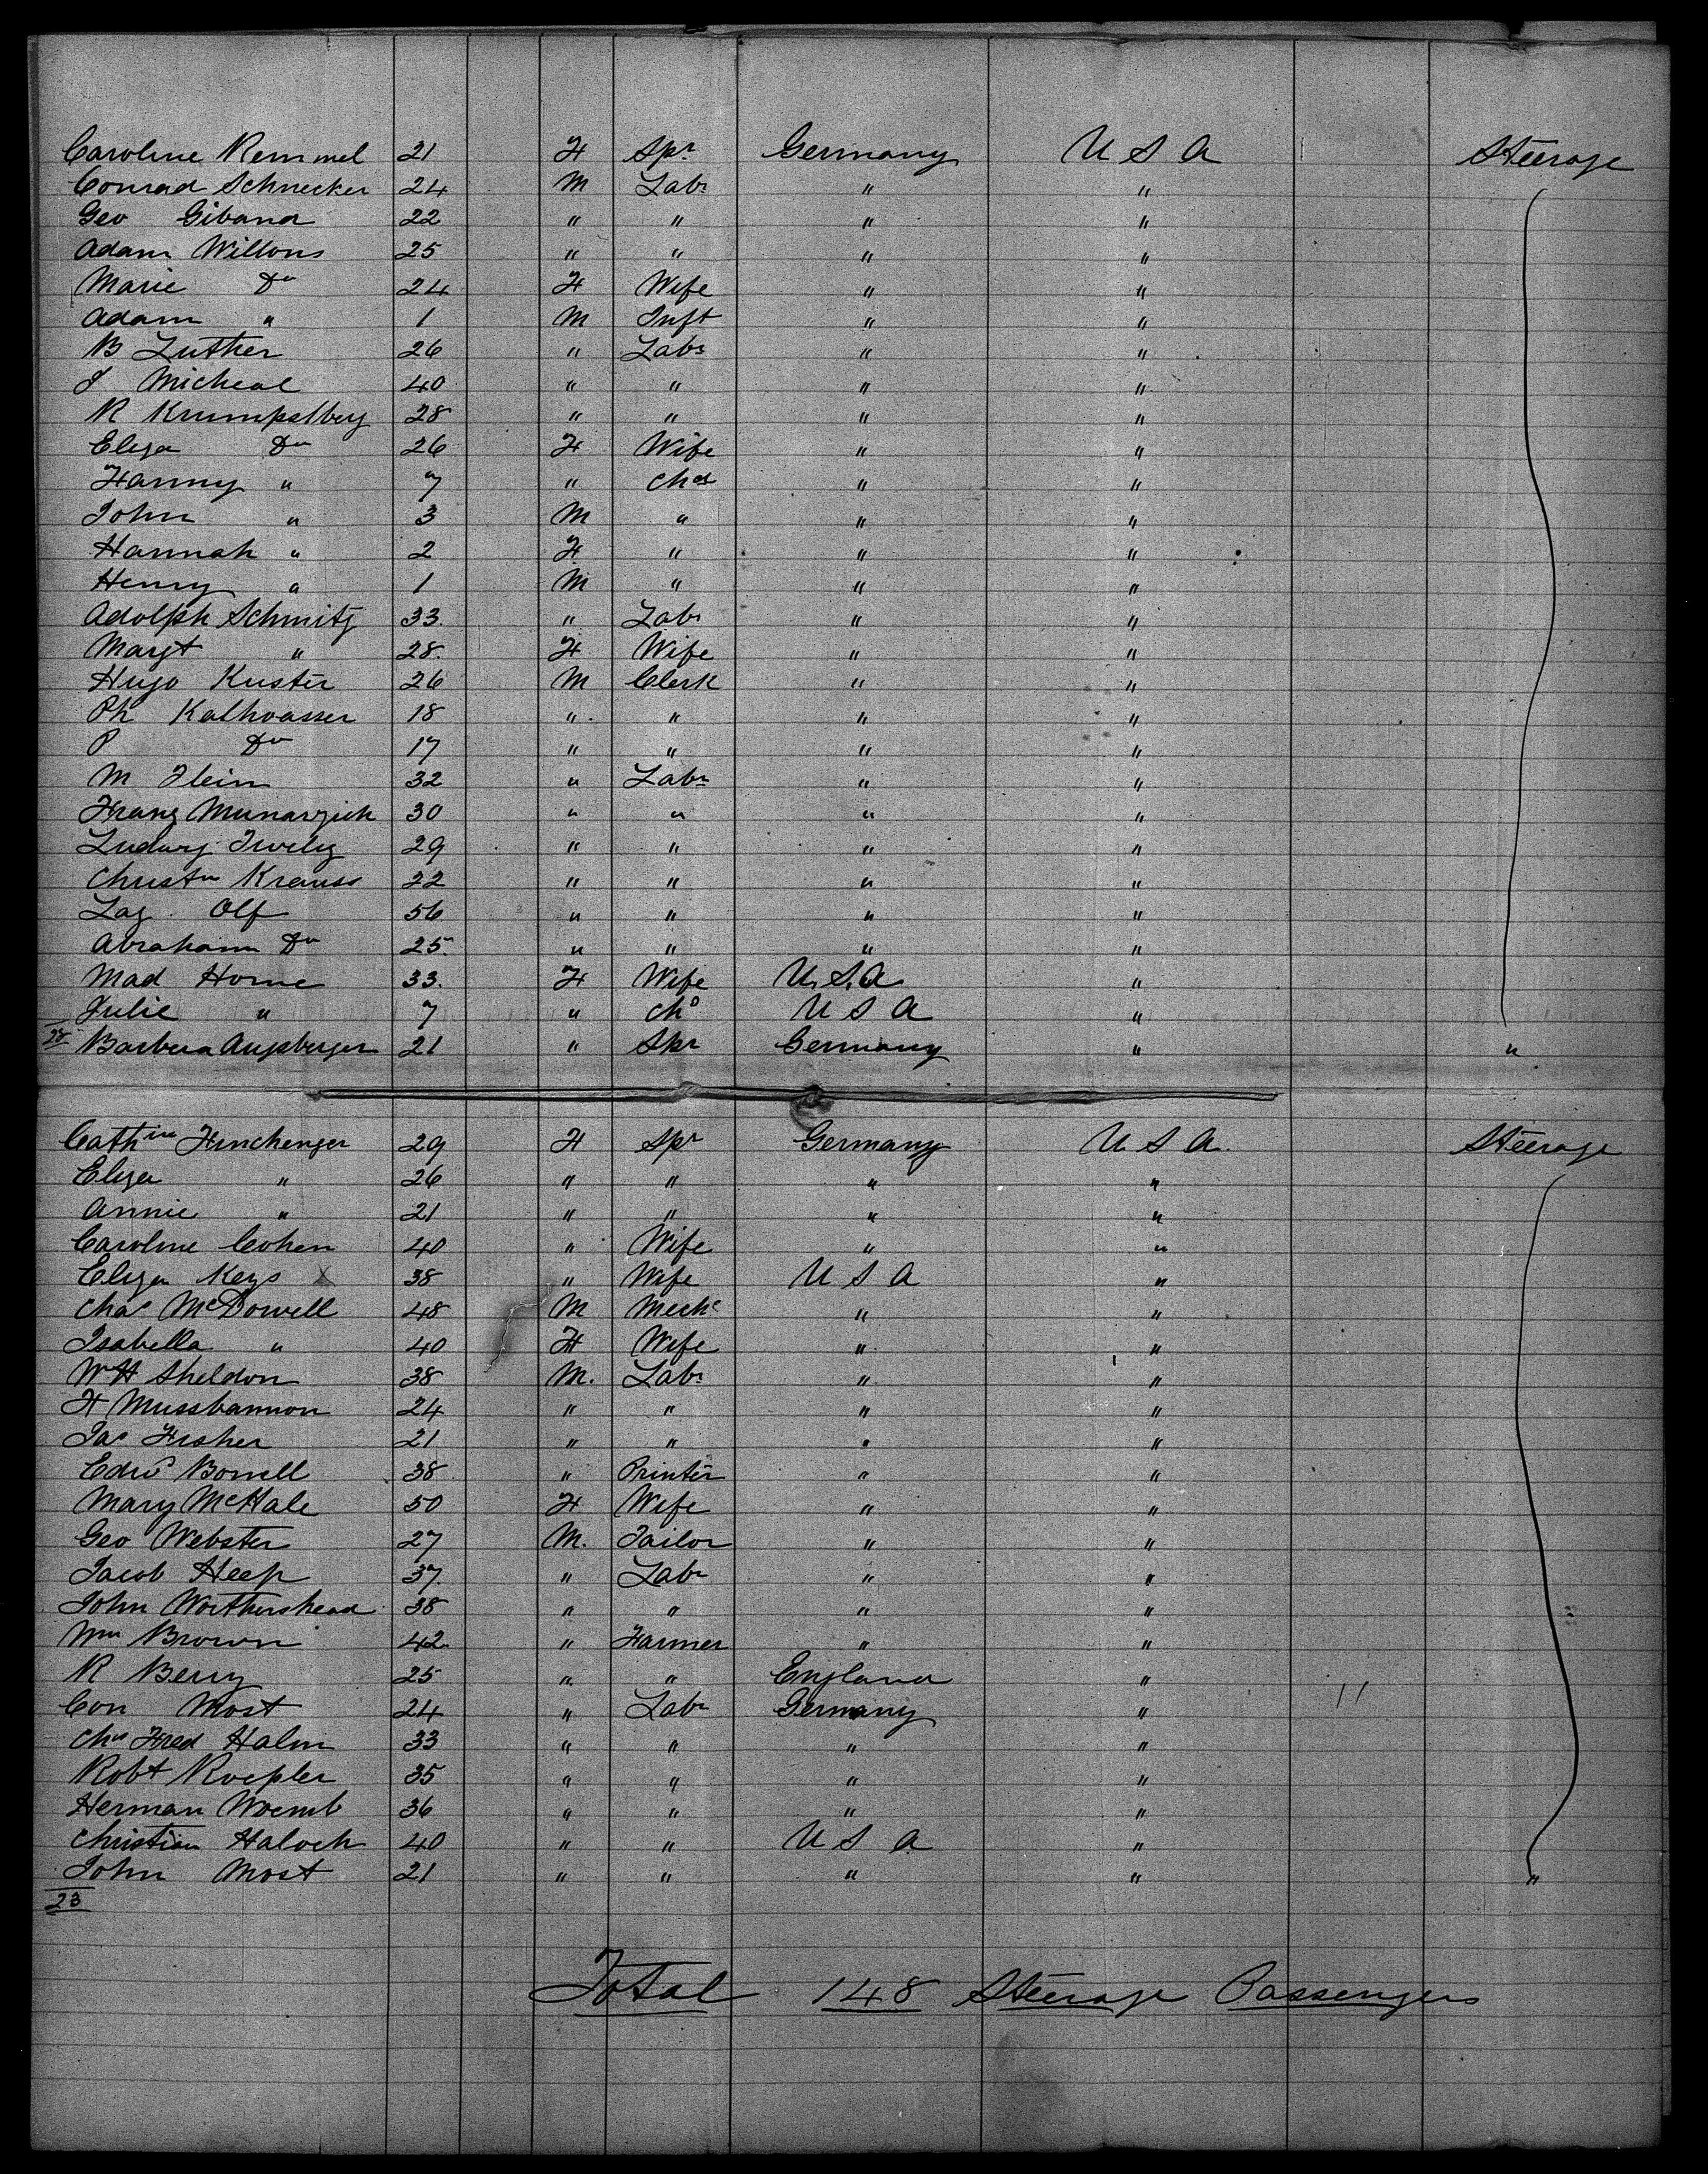 Caroline Remmel 21 F Spr Germany U S A Steerage
Conrad Schnecker 24 M Labr " "
Geo Giband 22 " " " "
Adam Willons 25 " " " "
Marie Do 24 F Wife " "
Adam " 1 M Inft " "
B Luther 26 " Labr " "
J Micheal 40 " " " "
R Krumpelberg 28 " " " "
Eliza Do 26 F Wife " "
Fanny " 7 " Chd " "
John " 3 M " " "
Hannah " 2 F " " "
Henry " 1 M " " "
Adolph Schmitz 33 " Labr " "
Margt " 28 F Wife " "
Hugo Kuster 26 M Clerk " "
Ph Kalhvasser 18 " " " "
P Do 17 " " " "
M Flein 32 " Labr " "
Franz Munarzick 30 " " " "
Ludwig 29 " " " "
Christn Krauss 22 " " " "
Laz. Olf 56 " " " "
Abraham Do 25 " " " "
Mad Horne 33 F Wife U.S.A "
Julie " 7 " Chd U S A "
28 Barbera Augsberger 21 " Spr Germany " "
Cathine Hinchenger 29 F Spr Germany U S A Steerage
Eliza " 26 " " " "
Annie " 21 " " " "
Caroline Cohen 40 " Wife " "
Eliza Keys X 38 " Wife U S A "
Chas McDowell 48 M Mechc " "
Isabella " 40 F Wife " "
W H Sheldon 38 M. Labr " "
F Mussbannon 24 " " " "
Jas Fisher 21 " " " "
Edwd Bonell 38 " Printer " "
Mary McHale 50 F Wife " "
Geo Webster 27 M. Tailor " "
Jacob Heep 37 " Labr " "
John Worthershead 38 " " " "
Wm Brown 42 " Farmer " "
R Berry 25 " " England "
Con Most 24 " Labr Germany "
Chn Fred Halm 33 " " " "
Robt Roepler 35 " " " "
Herman Woemb 36 " " " "
Christian Haloch 40 " " U S A "
John Most 21 " " " " "
23
Total 148 Steerage Passengers